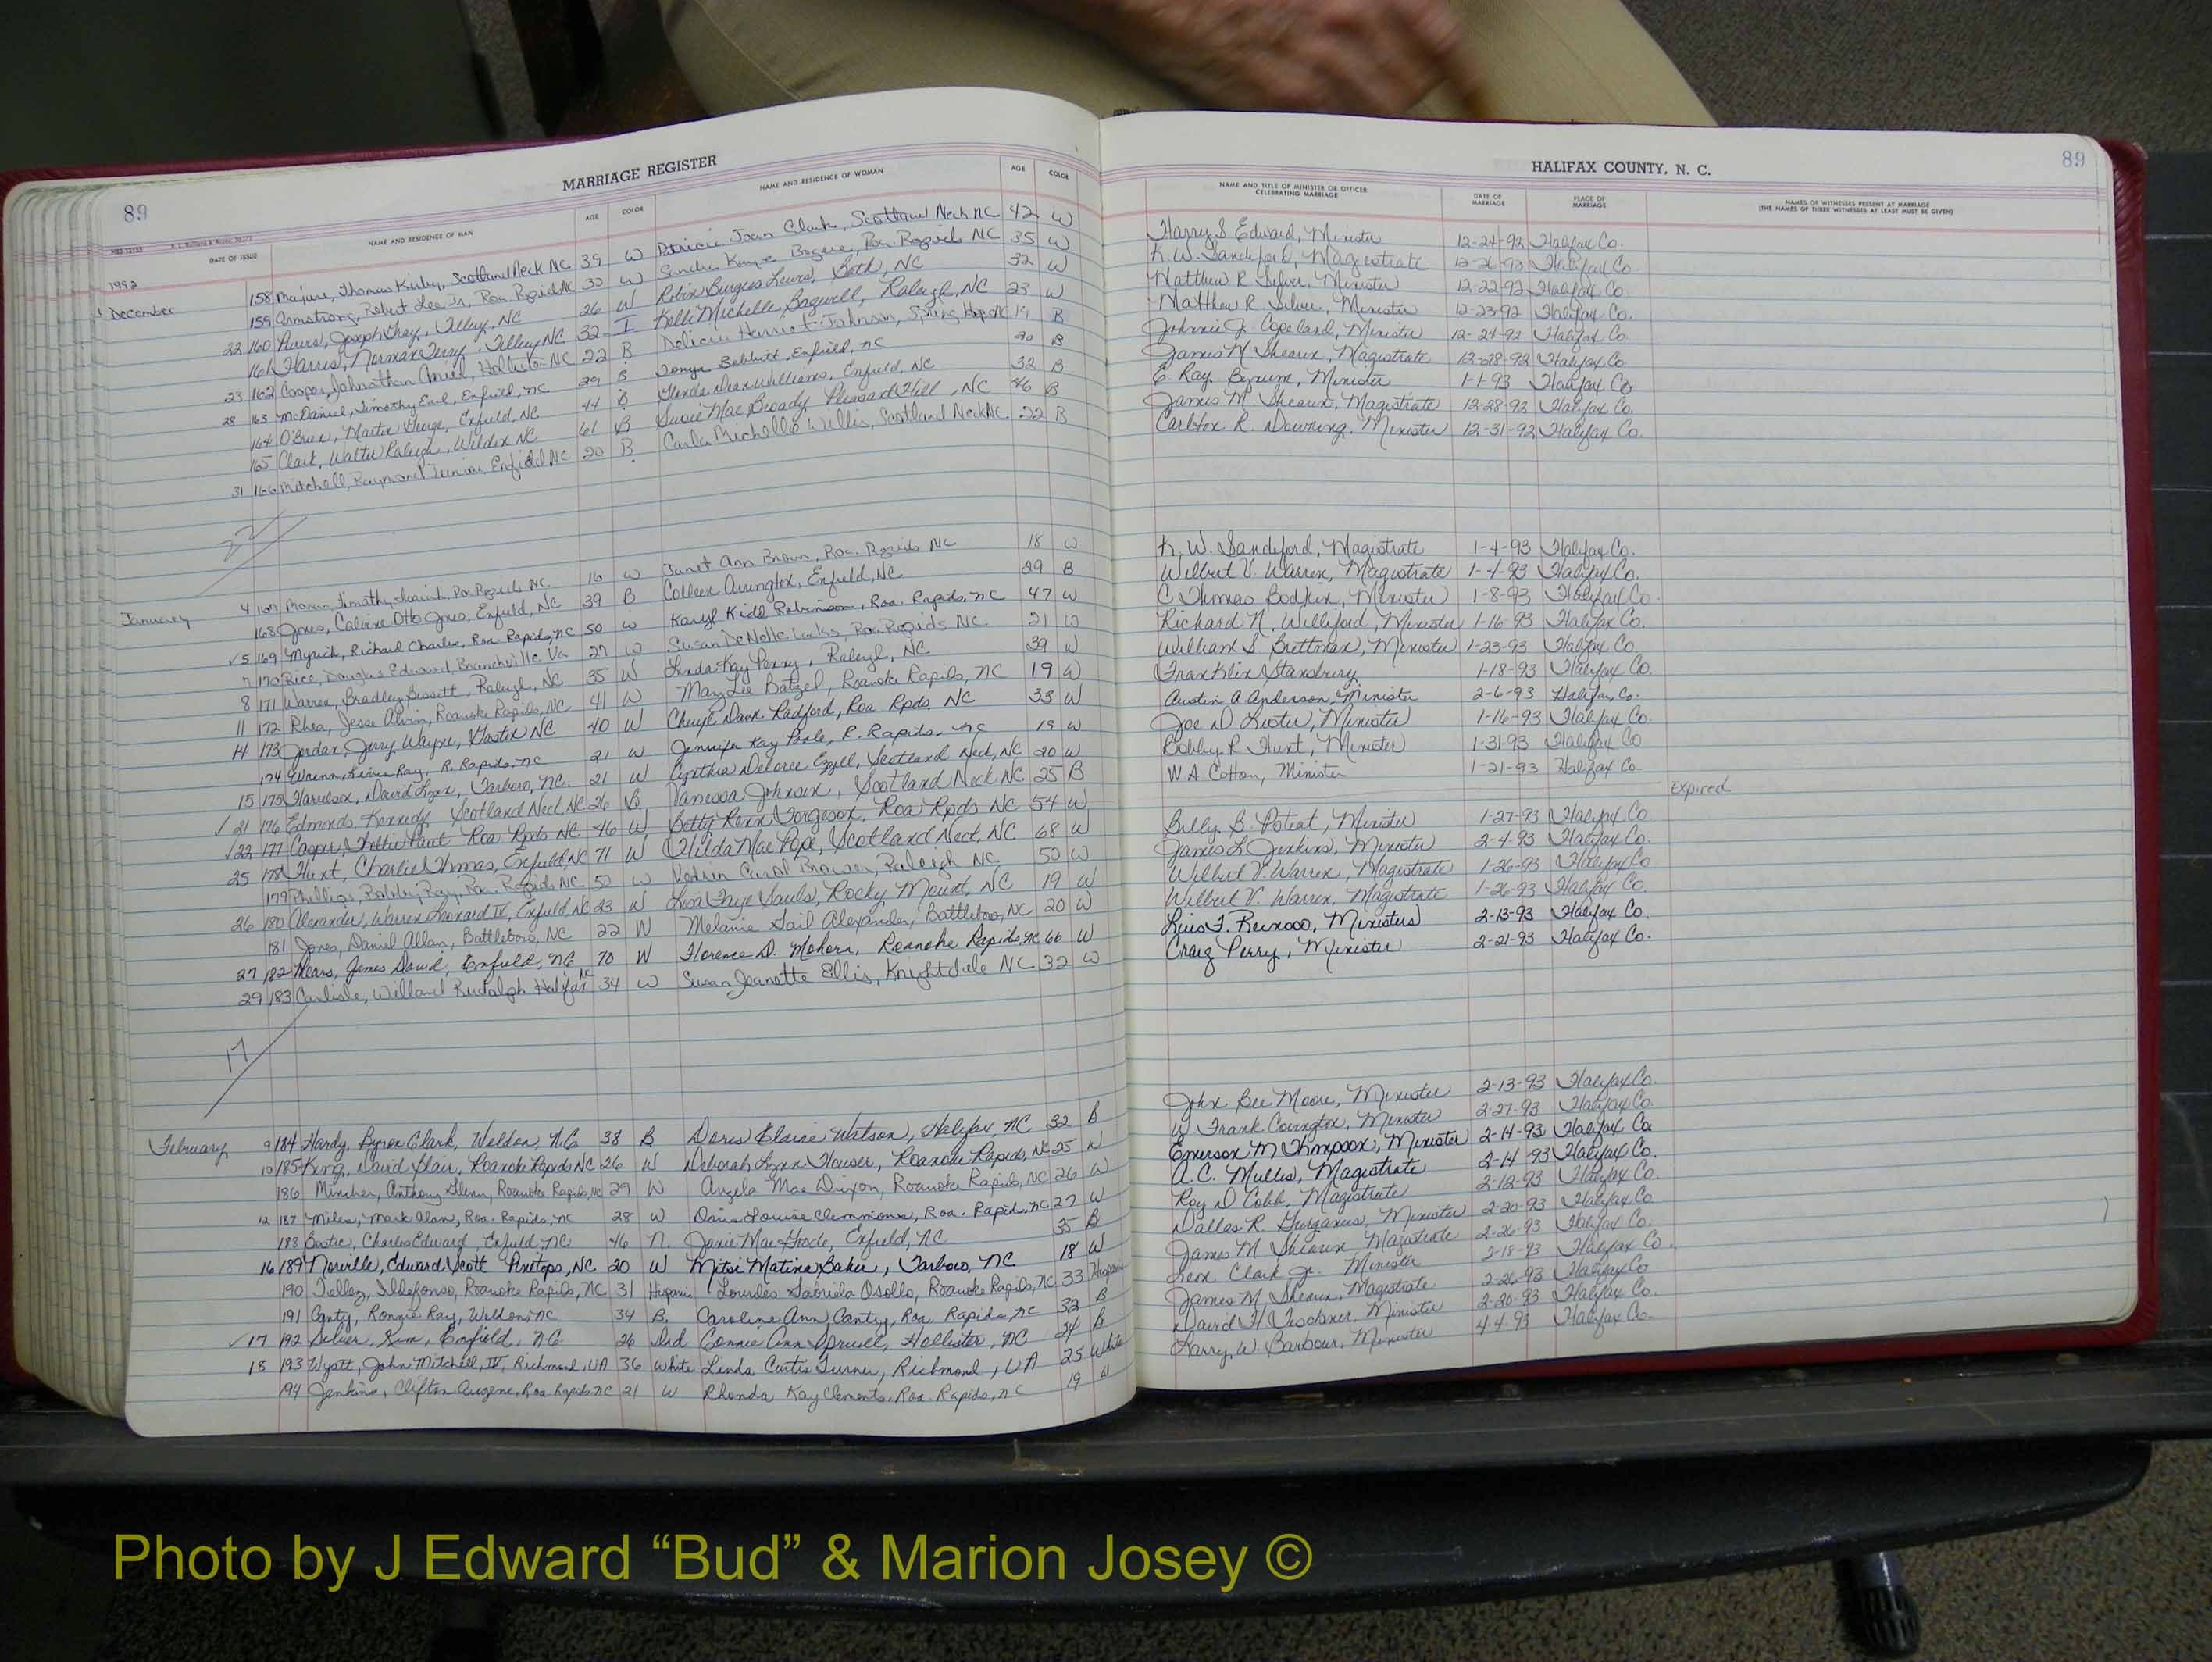 89
MARRIAGE REGISTER
DATE OF ISSUE
NAME AND RESIDENCE OF MAN
AGE
COLOR
NAME AND RESIDENCE OF WOMAN
AGE
COLOR
1992
December
158 Thomas Kirby, Scotland Neck NC 39 W Patricia Joan Clark, Scotland Neck NC 42 W
159 Armstrong, Robert Lee Jr, Roa. Rapids NC 30 W Sandra Kaye Roa. Rapids NC 35 W
22 160 Joseph Gray, Tillery, NC 26 W Robin Burgess Lewis, NC 32 W
161 Harris, Norman Terry, Tillery NC 32 I Kelli Michelle Bagwell, Raleigh, NC 23 W
23 162 Cooper, Johnathan Hollister NC 22 B Harriet Johnson, Spring Hope NC 19 B
28 163 McDaniel, Timothy Earl, Enfield, NC 29 B Tonya Babbitt, Enfield, NC 20 B
164 Martin George, Enfield, NC 44 B Williams, Enfield, NC 32 B
165 Clark, Walter Raleigh, Weldon NC 61 B Susie Mae Broady Pleasant Hill, NC 46 B
31 166 Mitchell, Raymond Junior Enfield, NC 20 B Carla Michelle Willis, Scotland Neck NC 22 B
22
January
4 167 Timothy Roa. Rapids NC 16 W Janet Ann Brown, Roa. Rapids NC 18 W
168 Jones, Calvine Otto Enfield, NC 39 B Colleen Arrington, Enfield, NC 29 B
✓5 169 Myrick, Richard Charles, Roa. Rapids, NC 50 W Karyl Kidd Robinson, Roa. Rapids, NC 47 W
7 170 Rice, Douglas Edward, Branchville Va 27 W Susan DeNelle Roa. Rapids NC 21 W
8 171 Warren, Bradley Bissett, Raleigh, NC 35 W Linda Kay Perry, Raleigh, NC 39 W
11 172 Rhea, Jesse Alvin, Roanoke Rapids, NC 41 W Mary Lee Batzel, Roanoke Rapids, NC 19 W
14 173 Jordan, Jerry Wayne, Gaston NC 40 W Cheryl Dawn Radford, Roa Rpds NC 33 W
174 Wrenn, Kevin Ray, R. Rapids, NC 21 W Jennifer Kay Poole, R. Rapids, NC 19 W
15 175 Harrelson, David Lynn, Tarboro, NC. 21 W Cynthia Delores Ezzell, Scotland Neck, NC 20 W
✓21 176 Edmonds Kennedy Scotland Neck, NC 26 B. Vanessa Johnson, Scotland Neck NC 25 B
✓22 177 Casper, Roa Rpds NC 46 W Betty Renn Roa Rpds NC 54 W
25 178 Hunt, Charlie Thomas, Enfield NC 71 W Hilda Mae Pope, Scotland Neck, NC 68 W
179 Phillips, Bobby Ray, Roa. Rapids NC. 50 W Carol Brown, Raleigh NC 50 W
26 180 Alexander, Warren Leonard IV, Enfield, NC 23 W Lisa Faye Sauls, Rocky Mount, NC 19 W
181 Jones, Daniel Allan, Battleboro, NC 22 W Melanie Gail Alexander, Battleboro, NC 20 W
27 182 Mears, James David, Enfield, NC 70 W Florence D. Mohorn, Roanoke Rapids, NC 66 W
29 183 Carlisle, Willard Rudolph Halifax NC 34 W Susan Jeanette Ellis, Knightdale NC 32 W
17
February
9 184 Hardy, Byron Clark, Weldon, NC 38 B Doris Elaine Watson, Halifax, NC 32 B
10 185 King, David Blair, Roanoke Rapids NC 26 W Deborah Lynn Houser, Roanoke Rapids, NC 25 W
186 Mincher, Anthony Glenn, Roanoke Rapids, NC 29 W Angela Mae Dixon, Roanoke Rapids, NC 26 W
12 187 Miles, Mark Alan, Roa. Rapids, NC 28 W Louise Clemmons, Roa. Rapids, NC 27 W
188 Charles Edward, Enfield, NC 46 N. Janie Mae Enfield, NC 35 B
16 189 Norville, Edward Scott Pinetops, NC 20 W Mitzi Matina Baker, Tarboro, NC 18 W
190 Tellez, Ildefonso, Roanoke Rapids, NC 31 Hispanic Lourdes Gabriela Osollo, Roanoke Rapids, NC 33 Hispanic
191 Canty, Ronnie Ray, Weldon, NC 34 B. Caroline Ann Canty, Roa. Rapids, NC 32 B
✓17 192 Silver, Kim, Enfield, NC 26 Ind Connie Ann Spruell, Hollister, NC 24 B
18 193 Wyatt, John Mitchell, IV, Richmond, VA 36 White Linda Curtis Turner, Richmond, VA 25 White
194 Jenkins, Clifton Eugene, Roa. Rapids NC 21 W Rhonda Kay Clements, Roa. Rapids, NC 19 W
HALIFAX COUNTY, N. C.
89
NAME AND TITLE OF MINISTER OR OFFICER
CELEBRATING MARRIAGE
DATE OF
MARRIAGE
PLACE OF
MARRIAGE
NAMES OF WITNESSES PRESENT AT MARRIAGE
(THE NAMES OF THREE WITNESSES AT LEAST MUST BE GIVEN)
Harry S Edward, Minister 12-24-92 Halifax Co.
K. W. Sandeford, Magistrate 12-26-92 Halifax Co
Matthew R. Silver, Minister 12-22-92 Halifax Co.
Matthew R. Silver, Minister 12-23-92 Halifax Co.
Johnnie J. Copeland, Minister 12-24-92 Halifax Co.
James M Shearin, Magistrate 12-28-92 Halifax Co
E Ray Byrum, Minister 1-1-93 Halifax Co
James M. Shearin, Magistrate 12-28-92 Halifax Co.
Carlton R. Downing, Minister 12-31-92 Halifax Co.
K. W. Sandeford, Magistrate 1-4-93 Halifax Co.
Wilbert V. Warren, Magistrate 1-4-93 Halifax Co.
C Thomas Bodkin, Minister 1-8-93 Halifax Co.
Richard N. Williford, Minister 1-16-93 Halifax Co.
William S. Brettman, Minister 1-23-93 Halifax Co
Franklin Stansbury 1-18-93 Halifax Co.
Austin A Anderson, Minister 2-6-93 Halifax Co.
Joe D Lister, Minister 1-16-93 Halifax Co.
Bobby R Hunt, Minister 1-31-93 Halifax Co
W A Cotton, Minister 1-21-93 Halifax Co-
Expired
Billy B. Poteat, Minister 1-27-93 Halifax Co
James L. Jenkins, Minister 2-4-93 Halifax Co.
Wilbert V. Warren, Magistrate 1-26-93 Halifax Co
Wilbert V. Warren, Magistrate 1-26-93 Halifax Co.
Luis F. Reinoso, Minister 2-13-93 Halifax Co.
Craig Perry, Minister 2-21-93 Halifax Co.
John Bee Moore, Minister 2-13-93 Halifax Co.
W Frank Covington, Minister 2-27-93 Halifax Co.
Emerson M Thompson, Minister 2-14-93 Halifax Co
A. C. Mullis, Magistrate 2-14 93 Halifax Co.
Roy D Cobb, Magistrate 2-12-93 Halifax Co.
Dallas R. Gurganus, Minister 2-20-93 Halifax Co
James M Shearin Magistrate 2-26-93 Halifax Co.
Leon Clark Jr. Minister 2-18-93 Halifax Co.
James M Shearin, Magistrate 2-26-93 Halifax Co
David H. Minister 2-20-93 Halifax Co.
Larry W. Barbour, Minister 4-4-93 Halifax Co.
Photo by J Edward “Bud” & Marion Josey ©